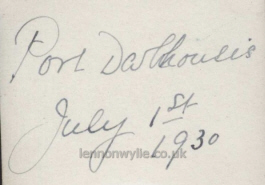 Port Dalhousie
July 1st
1930
lennonwylie.co.uk